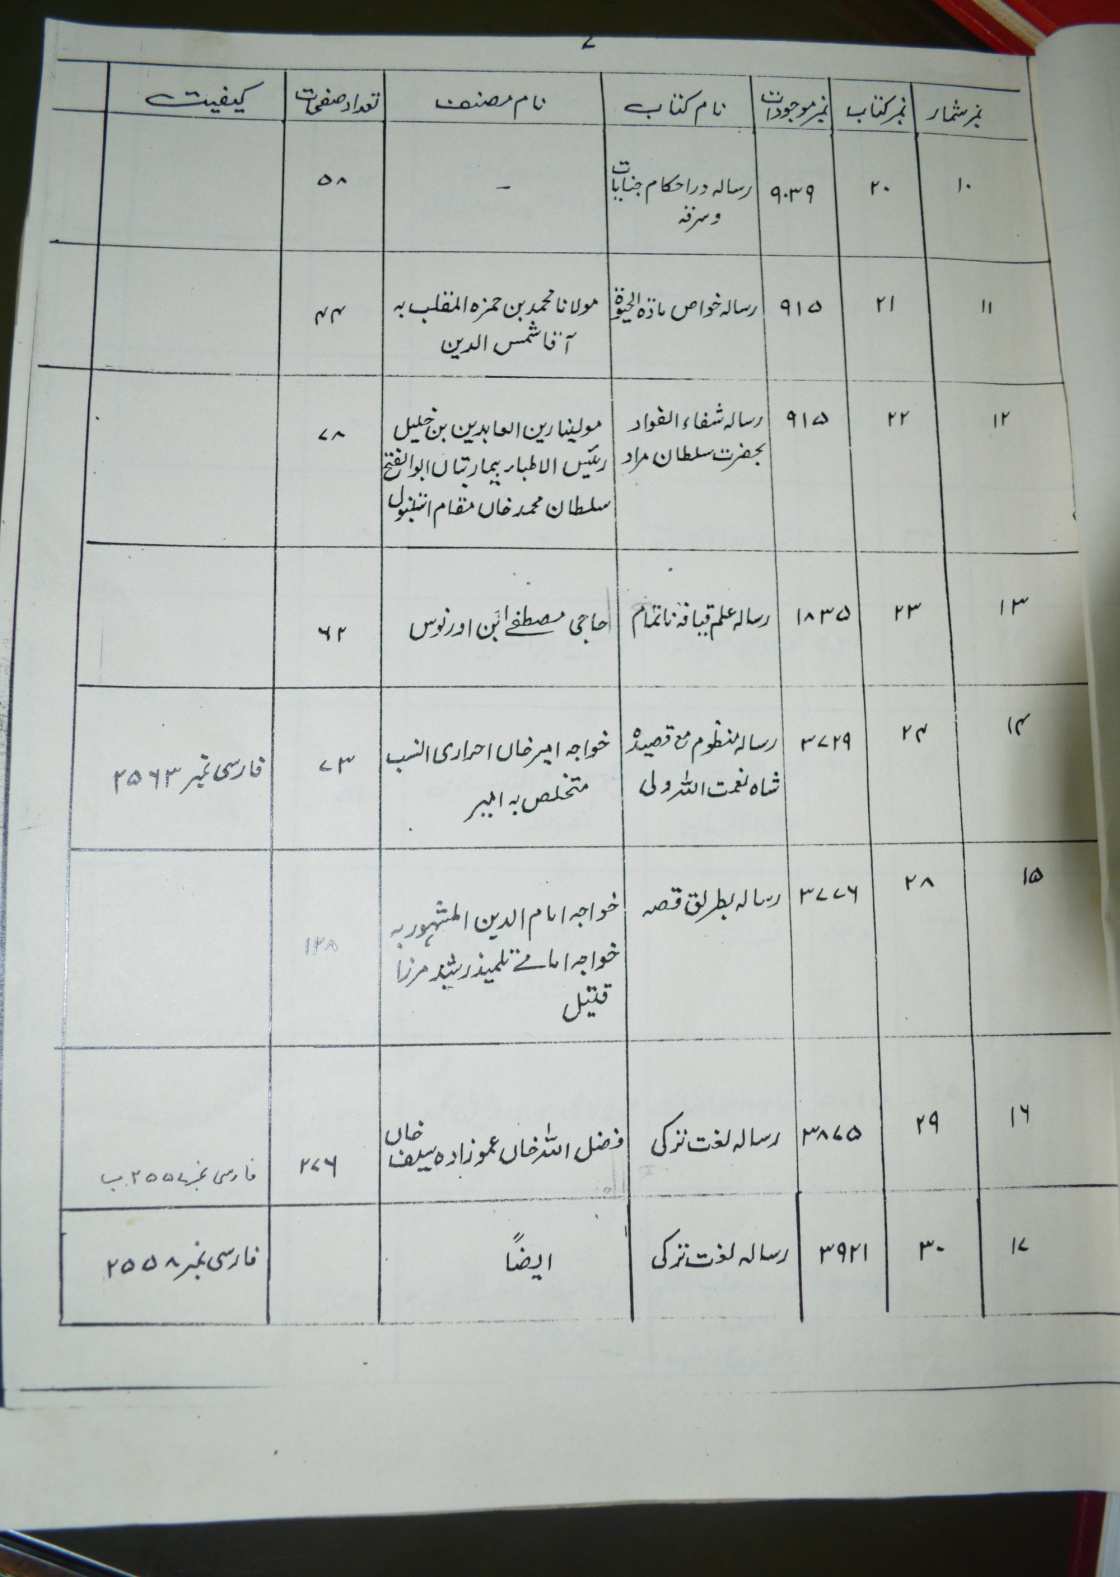 ۷
نمبر شمار نمبر کتاب نمبر موجودات نام کتاب نام مصنف تعداد صفحات کیفیت
۱۰ ۲۰ ۹۰۳۹ رسالہ در احکام جنایات — ۵۸
و سرقہ
۱۱ ۲۱ ۹۱۵ رسالہ خواص مادۃ الحیٰوۃ مولانا محمد بن حمزہ الملقب بہ ۴۴
آقا شمس الدین
۱۲ ۲۲ ۹۱۵ رسالہ شفاء الفواد مولینا زین العابدین بن خلیل ۷۸
بحضرت سلطان مراد رئیس الاطباء بیمارستان ابوالفتح
سلطان محمد خاں مقام استنبول
۱۳ ۲۳ ۱۸۳۵ رسالہ علم قیافہ ناتمام حاجی مصطفےٰ ابن اورنوس ۶۲
۱۴ ۲۴ ۳۷۲۹ رسالہ منظوم مع قصیدہ خواجہ امیر خاں احراری النسب ۷۳ فارسی نمبر ۲۵۶۳
شاہ نعمت اللہ ولی متخلص بہ امیر
۱۵ ۲۸ ۳۷۷۶ رسالہ بطریق قصہ خواجہ امام الدین المشہور بہ ۱۲۸
خواجہ امامے تلمیذ رشید مرزا
قتیل
۱۶ ۲۹ ۳۸۷۵ رسالہ لغت ترکی فضل اللہ خاں عموزادہ سیف خاں ۲۷۶ فارسی نمبر ۲۵۵۷ ب
۱۷ ۳۰ ۳۹۲۱ رسالہ لغت ترکی ایضاً فارسی نمبر ۲۵۵۸